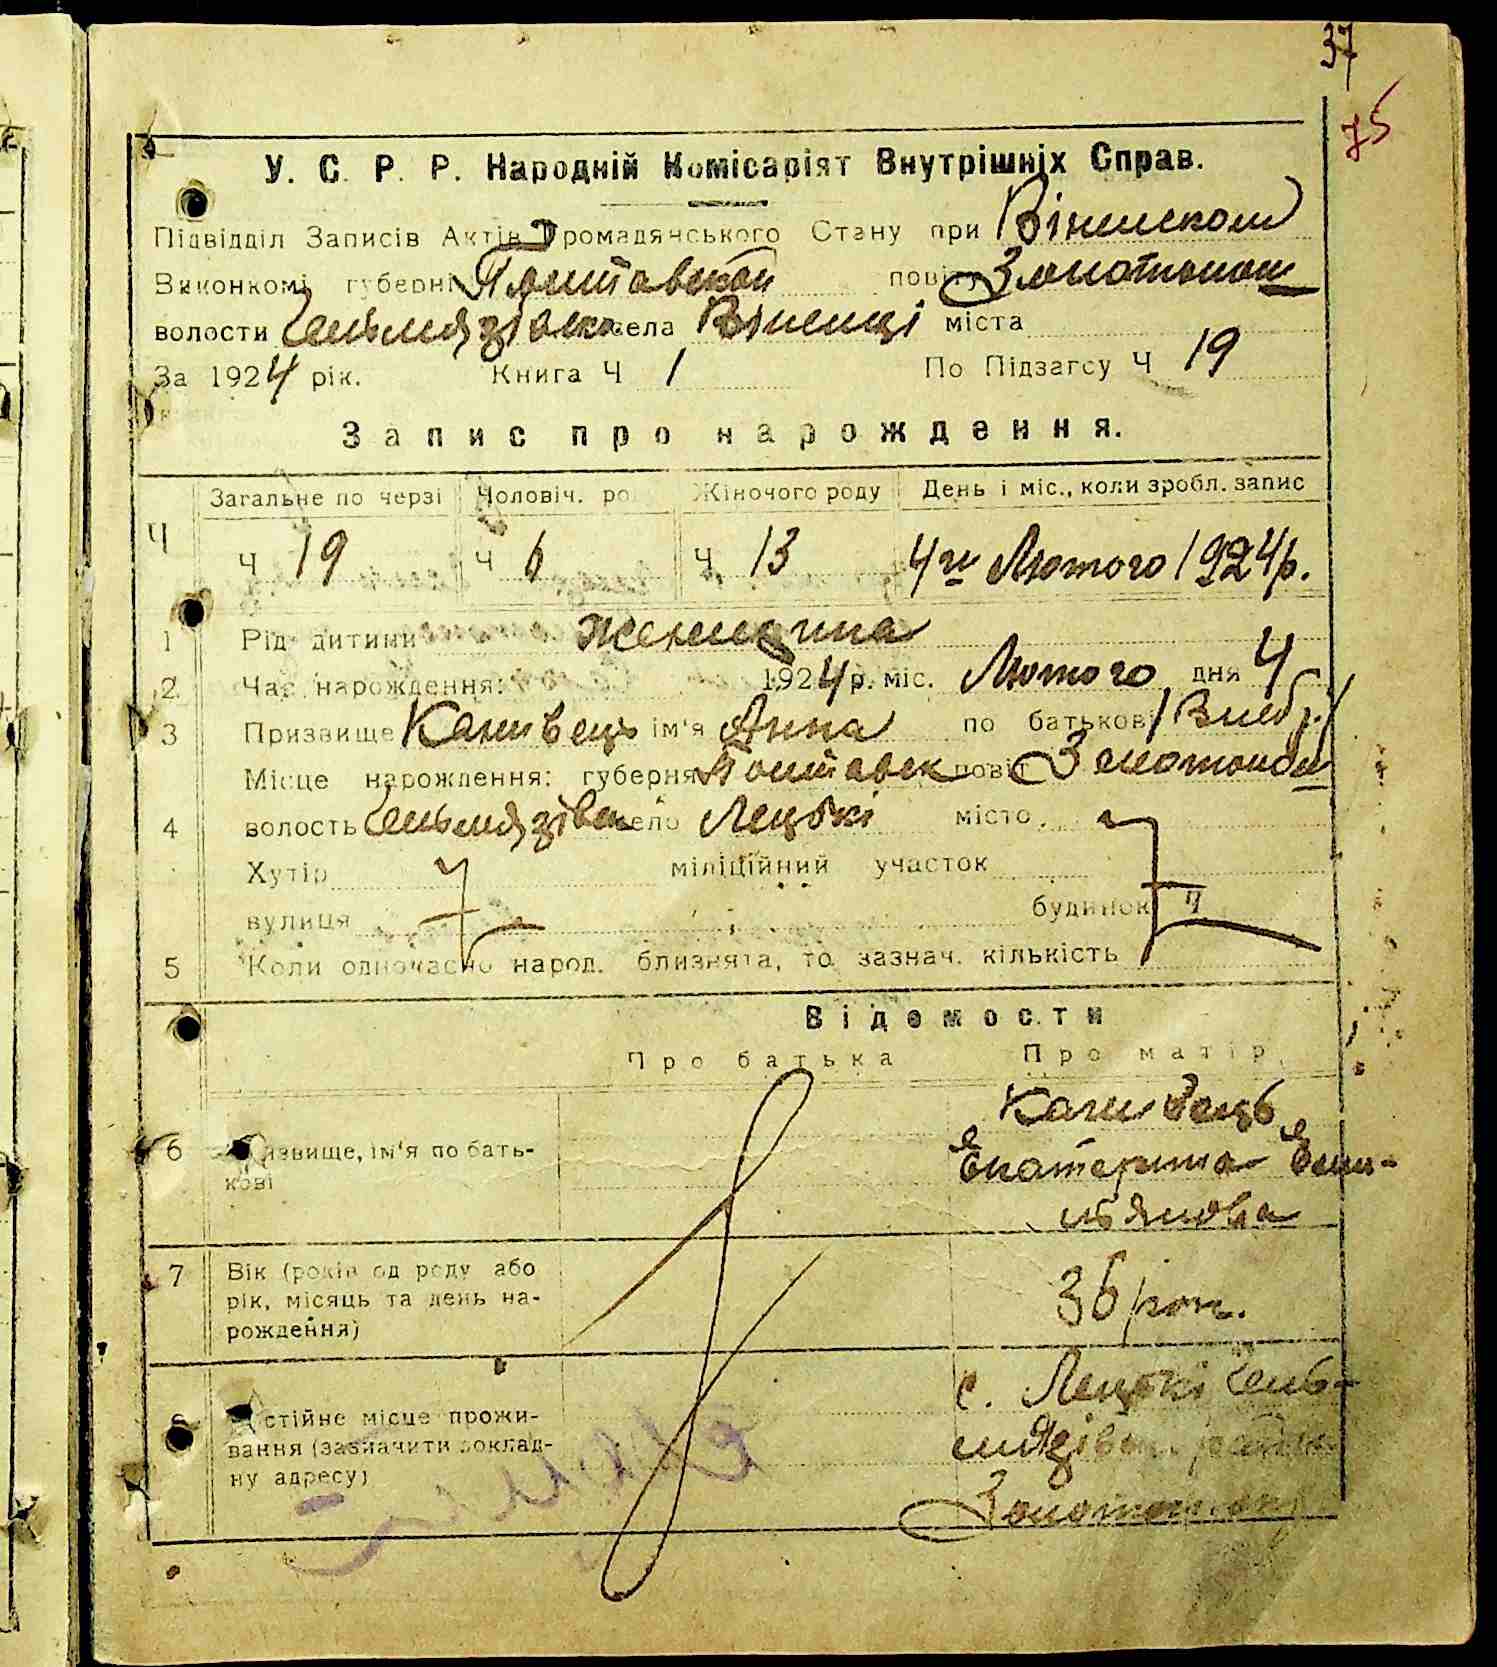 37
75
У. С. Р. Р. Народній Комісаріят Внутрішніх Справ.
Підвідділ Записів Актів Громадянського Стану при Вінинском
Виконкомі губерні Полтавской повіту Золотонош
волости Гельмязівск села Вінинці міста
За 1924 рік. Книга Ч 1 По Підзагсу Ч 19
Запис про нарождення.
Загальне по черзі Чоловіч. ро Жіночого роду День і міс., коли зробл. запис
Ч Ч 19 Ч 6 Ч 13 4го Лютого 1924р.
1 Рід дитини Женщина
2 Час нарождення: 1924 р. міс. Лютого дня 4
3 Призвище Канивець ім'я Анна по батькові /Внебр./
Місце нарождення: губерня Полтавск повіт Золотонош
4 волость Гельмязівск село Лецькі місто
Хутір міліційний участок
вулиця будинок Ч
5 Коли одночасно народ. близнята, то зазнач. кількість
Відомости
Про батька Про матір
Канивець
6 язвище, ім'я по бать- Екатерина Еми-
кові льянова
7 Вік (років од роду або
рік, місяць та день на- 36 рок.
рождення)
с. Лецькі Гель-
8 стійне місце прожи-
вання (зазначити доклад- мязівск. район
ну адресу) Золотон. окр